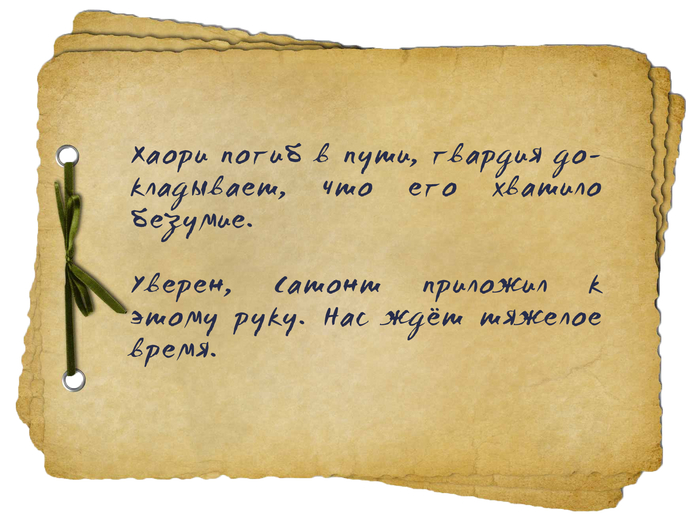 Хаори погиб в пути, гвардия до-
кладывает, что его хватило
безумие.
Уверен, Сатонт приложил к
этому руку. Нас ждёт тяжелое
время.